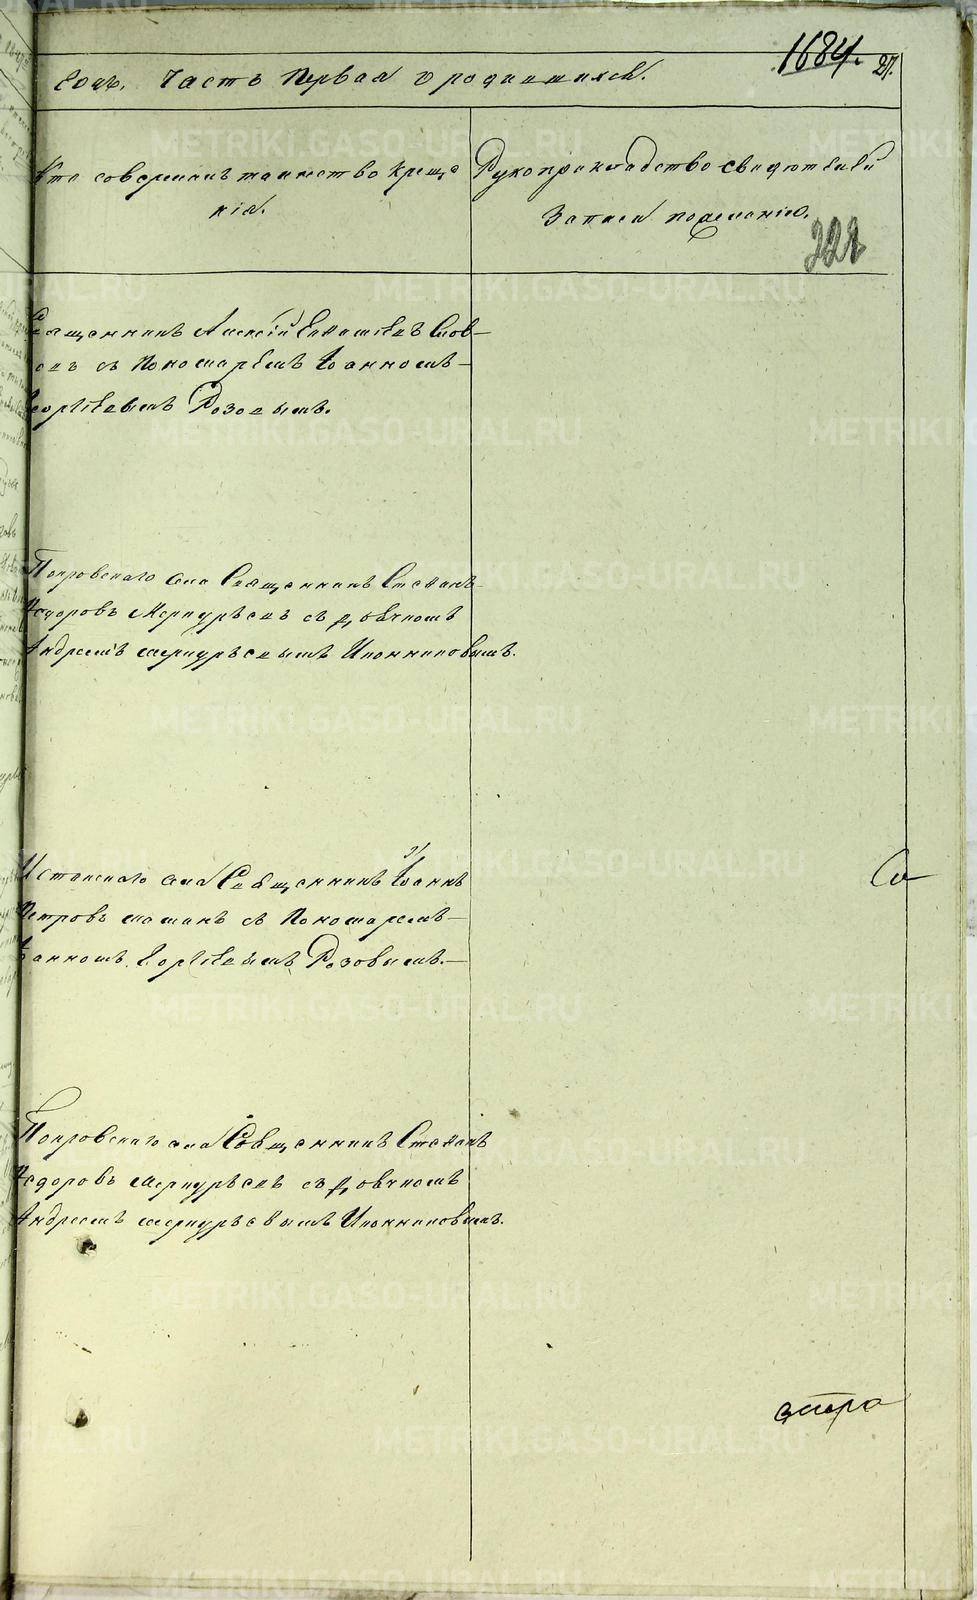 1684. 27.
годъ. Часть первая о родившихся.
Кто совершалъ таинство креще
нія.
Рукоприкладство свидѣтелей
записи по желанію.
222
Священникъ Алексѣй
съ Пономаремъ Іоанномъ
Георгіевымъ Розовымъ.
Покровскаго села Священникъ Стефанъ
Ѳедоровъ Меркурьевъ съ дьячкомъ
Андреемъ Меркурьевымъ Иконниковымъ.
села Священникъ Іоаннъ
Петровъ съ Пономаремъ
Іоанномъ Георгіевымъ Розовымъ.
Покровскаго села Священникъ Стефанъ
Ѳедоровъ Меркурьевъ съ дьячкомъ
Андреемъ Меркурьевымъ Иконниковымъ.
METRIKI.GASO-URAL.RU